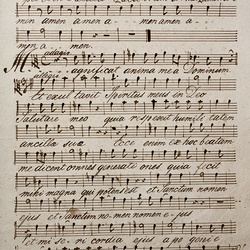 men amen a men a men amen a
men a men.
adagio
Magnificat anima mea Dominum
adagio
Et exultavit Spiritus meus in Deo
Salutare meo quia respexit humili tatem
ancilla sua Ecce enim ex hoc beatam
me dicent omnes generati ones quia fecit
mihi magna qui potens est et Sanctum nomen
ejus et Sanctum no men nomen e jus
et mi se ri cordia ejus a pro genie